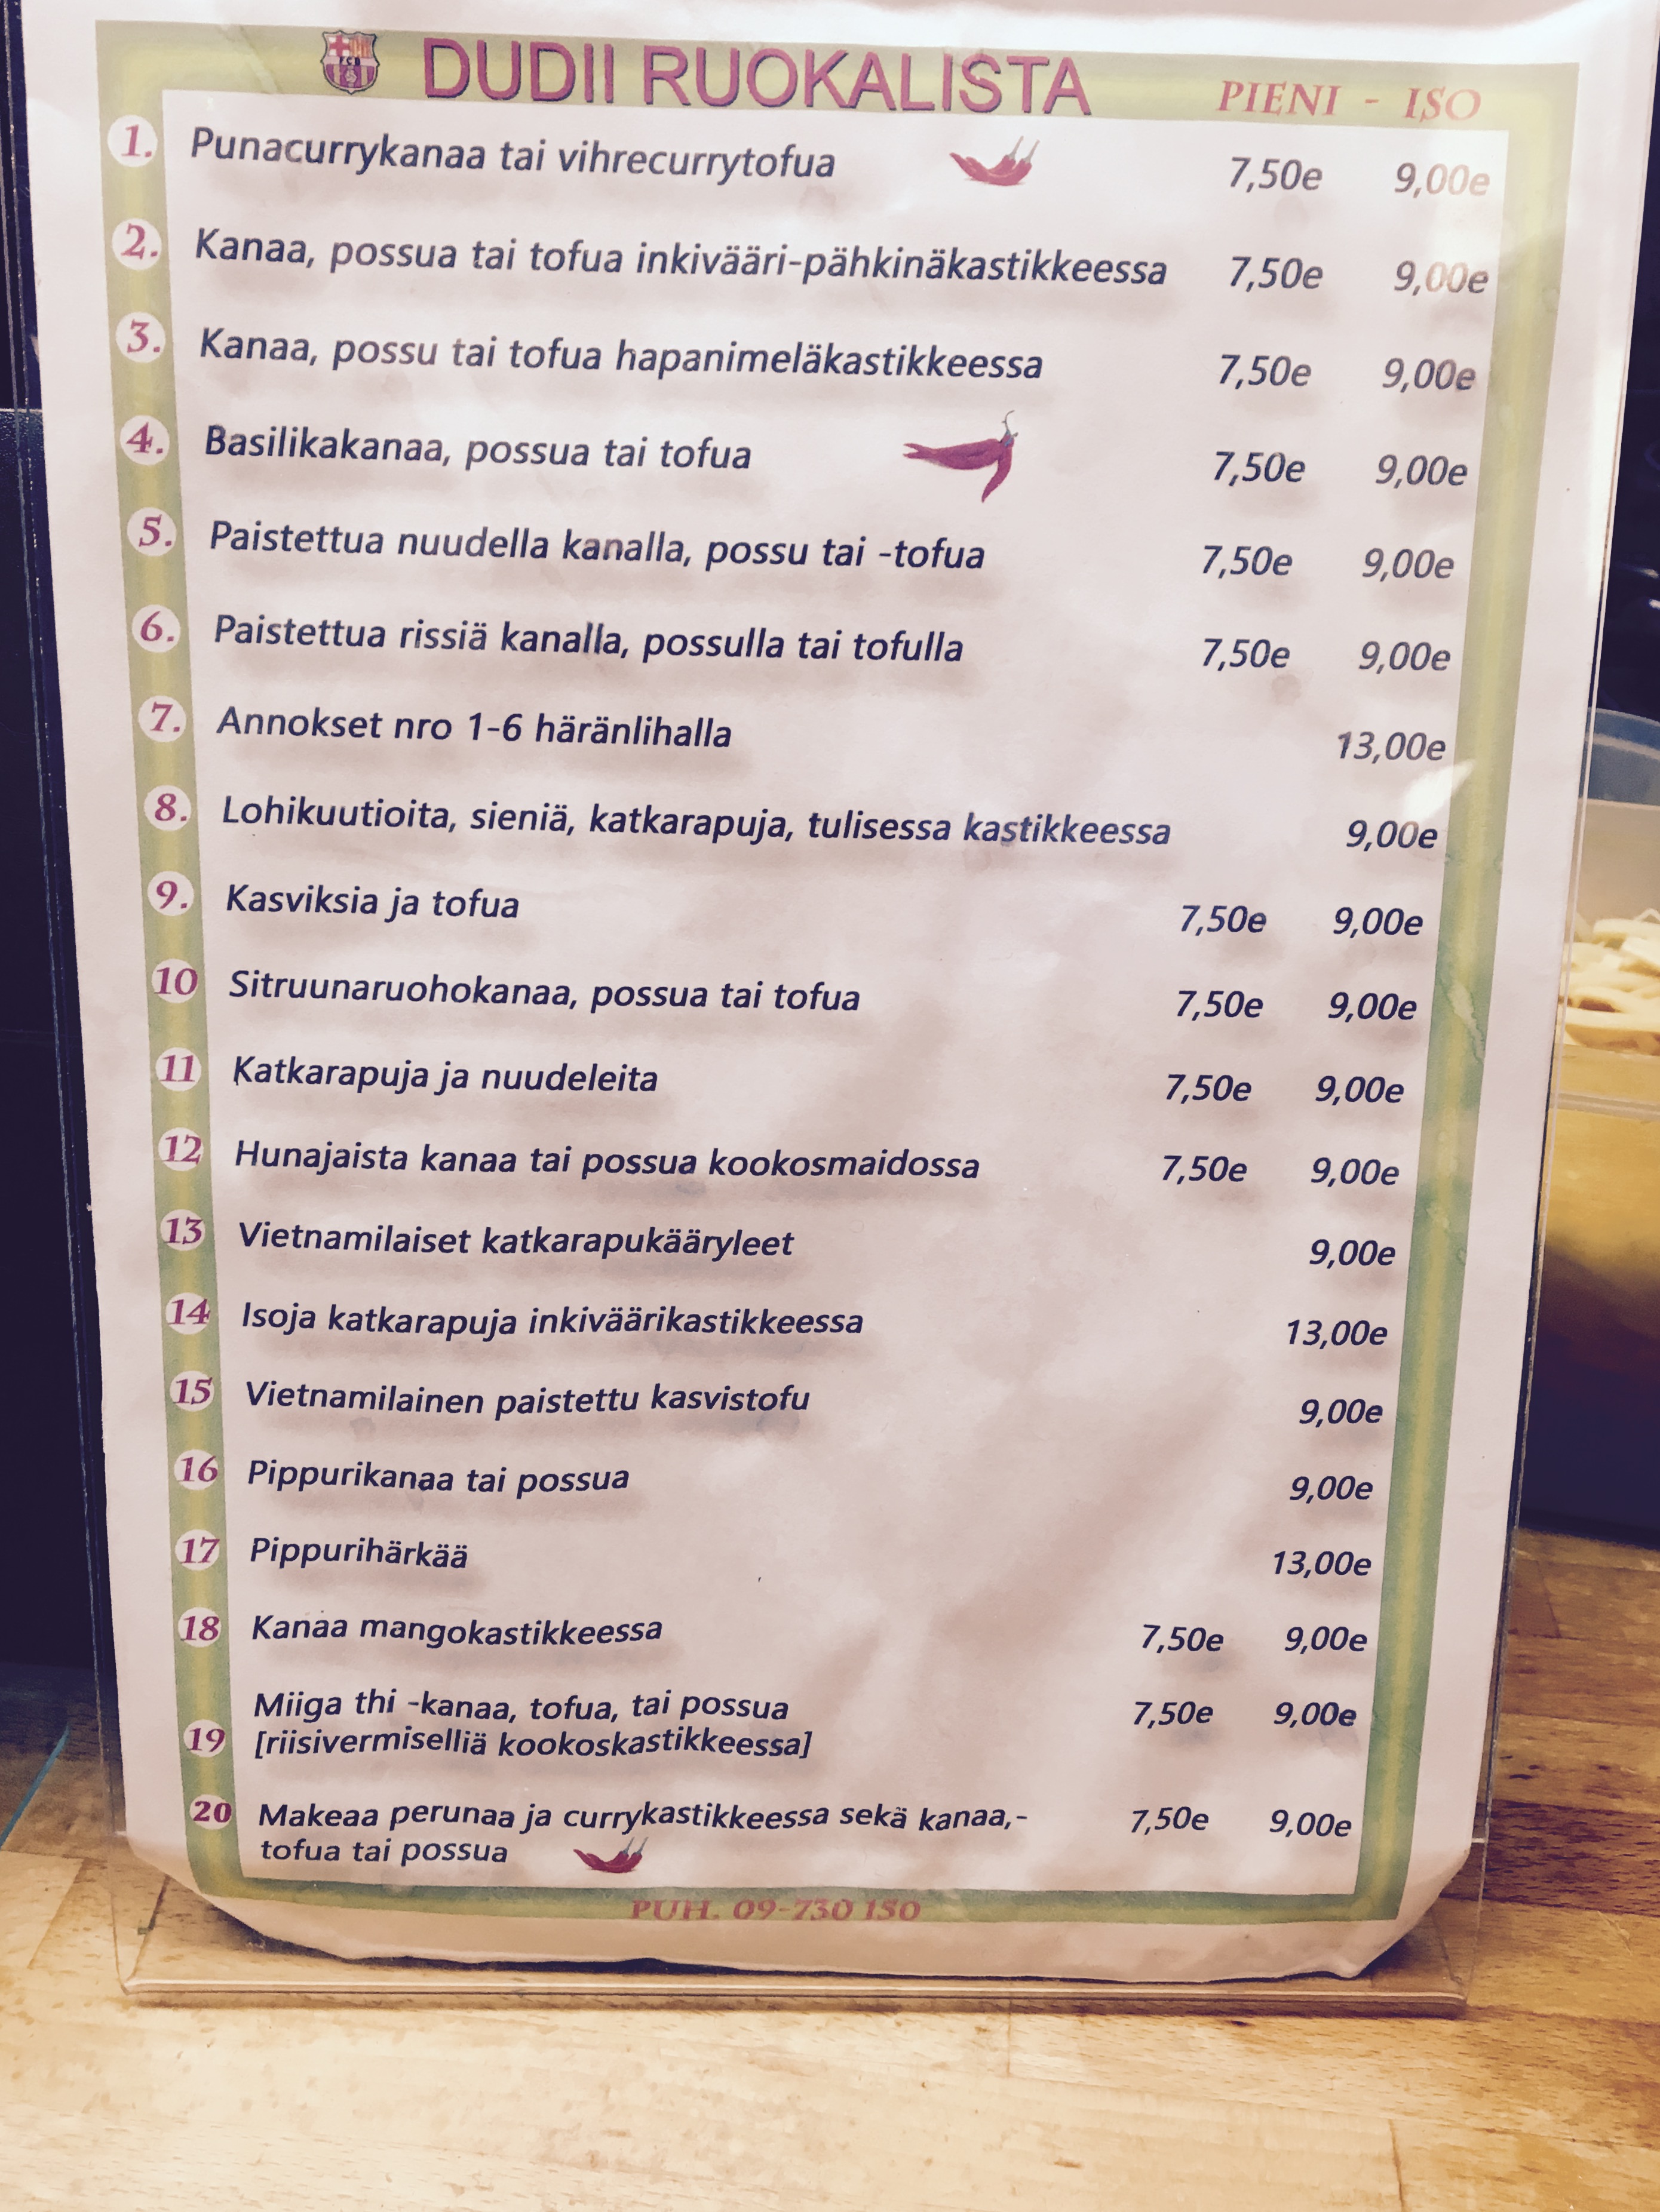 DUDII RUOKALISTA PIENI - ISO
1. Punacurrykanaa tai vihrecurrytofua 7,50e 9,00e
2. Kanaa, possua tai tofua inkivääri-pähkinäkastikkeessa 7,50e 9,00e
3. Kanaa, possu tai tofua hapanimeläkastikkeessa 7,50e 9,00e
4. Basilikakanaa, possua tai tofua 7,50e 9,00e
5. Paistettua nuudella kanalla, possu tai -tofua 7,50e 9,00e
6. Paistettua rissiä kanalla, possulla tai tofulla 7,50e 9,00e
7. Annokset nro 1-6 häränlihalla 13,00e
8. Lohikuutioita, sieniä, katkarapuja, tulisessa kastikkeessa 9,00e
9. Kasviksia ja tofua 7,50e 9,00e
10 Sitruunaruohokanaa, possua tai tofua 7,50e 9,00e
11 Katkarapuja ja nuudeleita 7,50e 9,00e
12 Hunajaista kanaa tai possua kookosmaidossa 7,50e 9,00e
13 Vietnamilaiset katkarapukääryleet 9,00e
14 Isoja katkarapuja inkiväärikastikkeessa 13,00e
15 Vietnamilainen paistettu kasvistofu 9,00e
16 Pippurikanaa tai possua 9,00e
17 Pippurihärkää 13,00e
18 Kanaa mangokastikkeessa 7,50e 9,00e
Miiga thi -kanaa, tofua, tai possua 7,50e 9,00e
19 [riisivermiselliä kookoskastikkeessa]
20 Makeaa perunaa ja currykastikkeessa sekä kanaa,- 7,50e 9,00e
tofua tai possua
PUH. 09-730 150